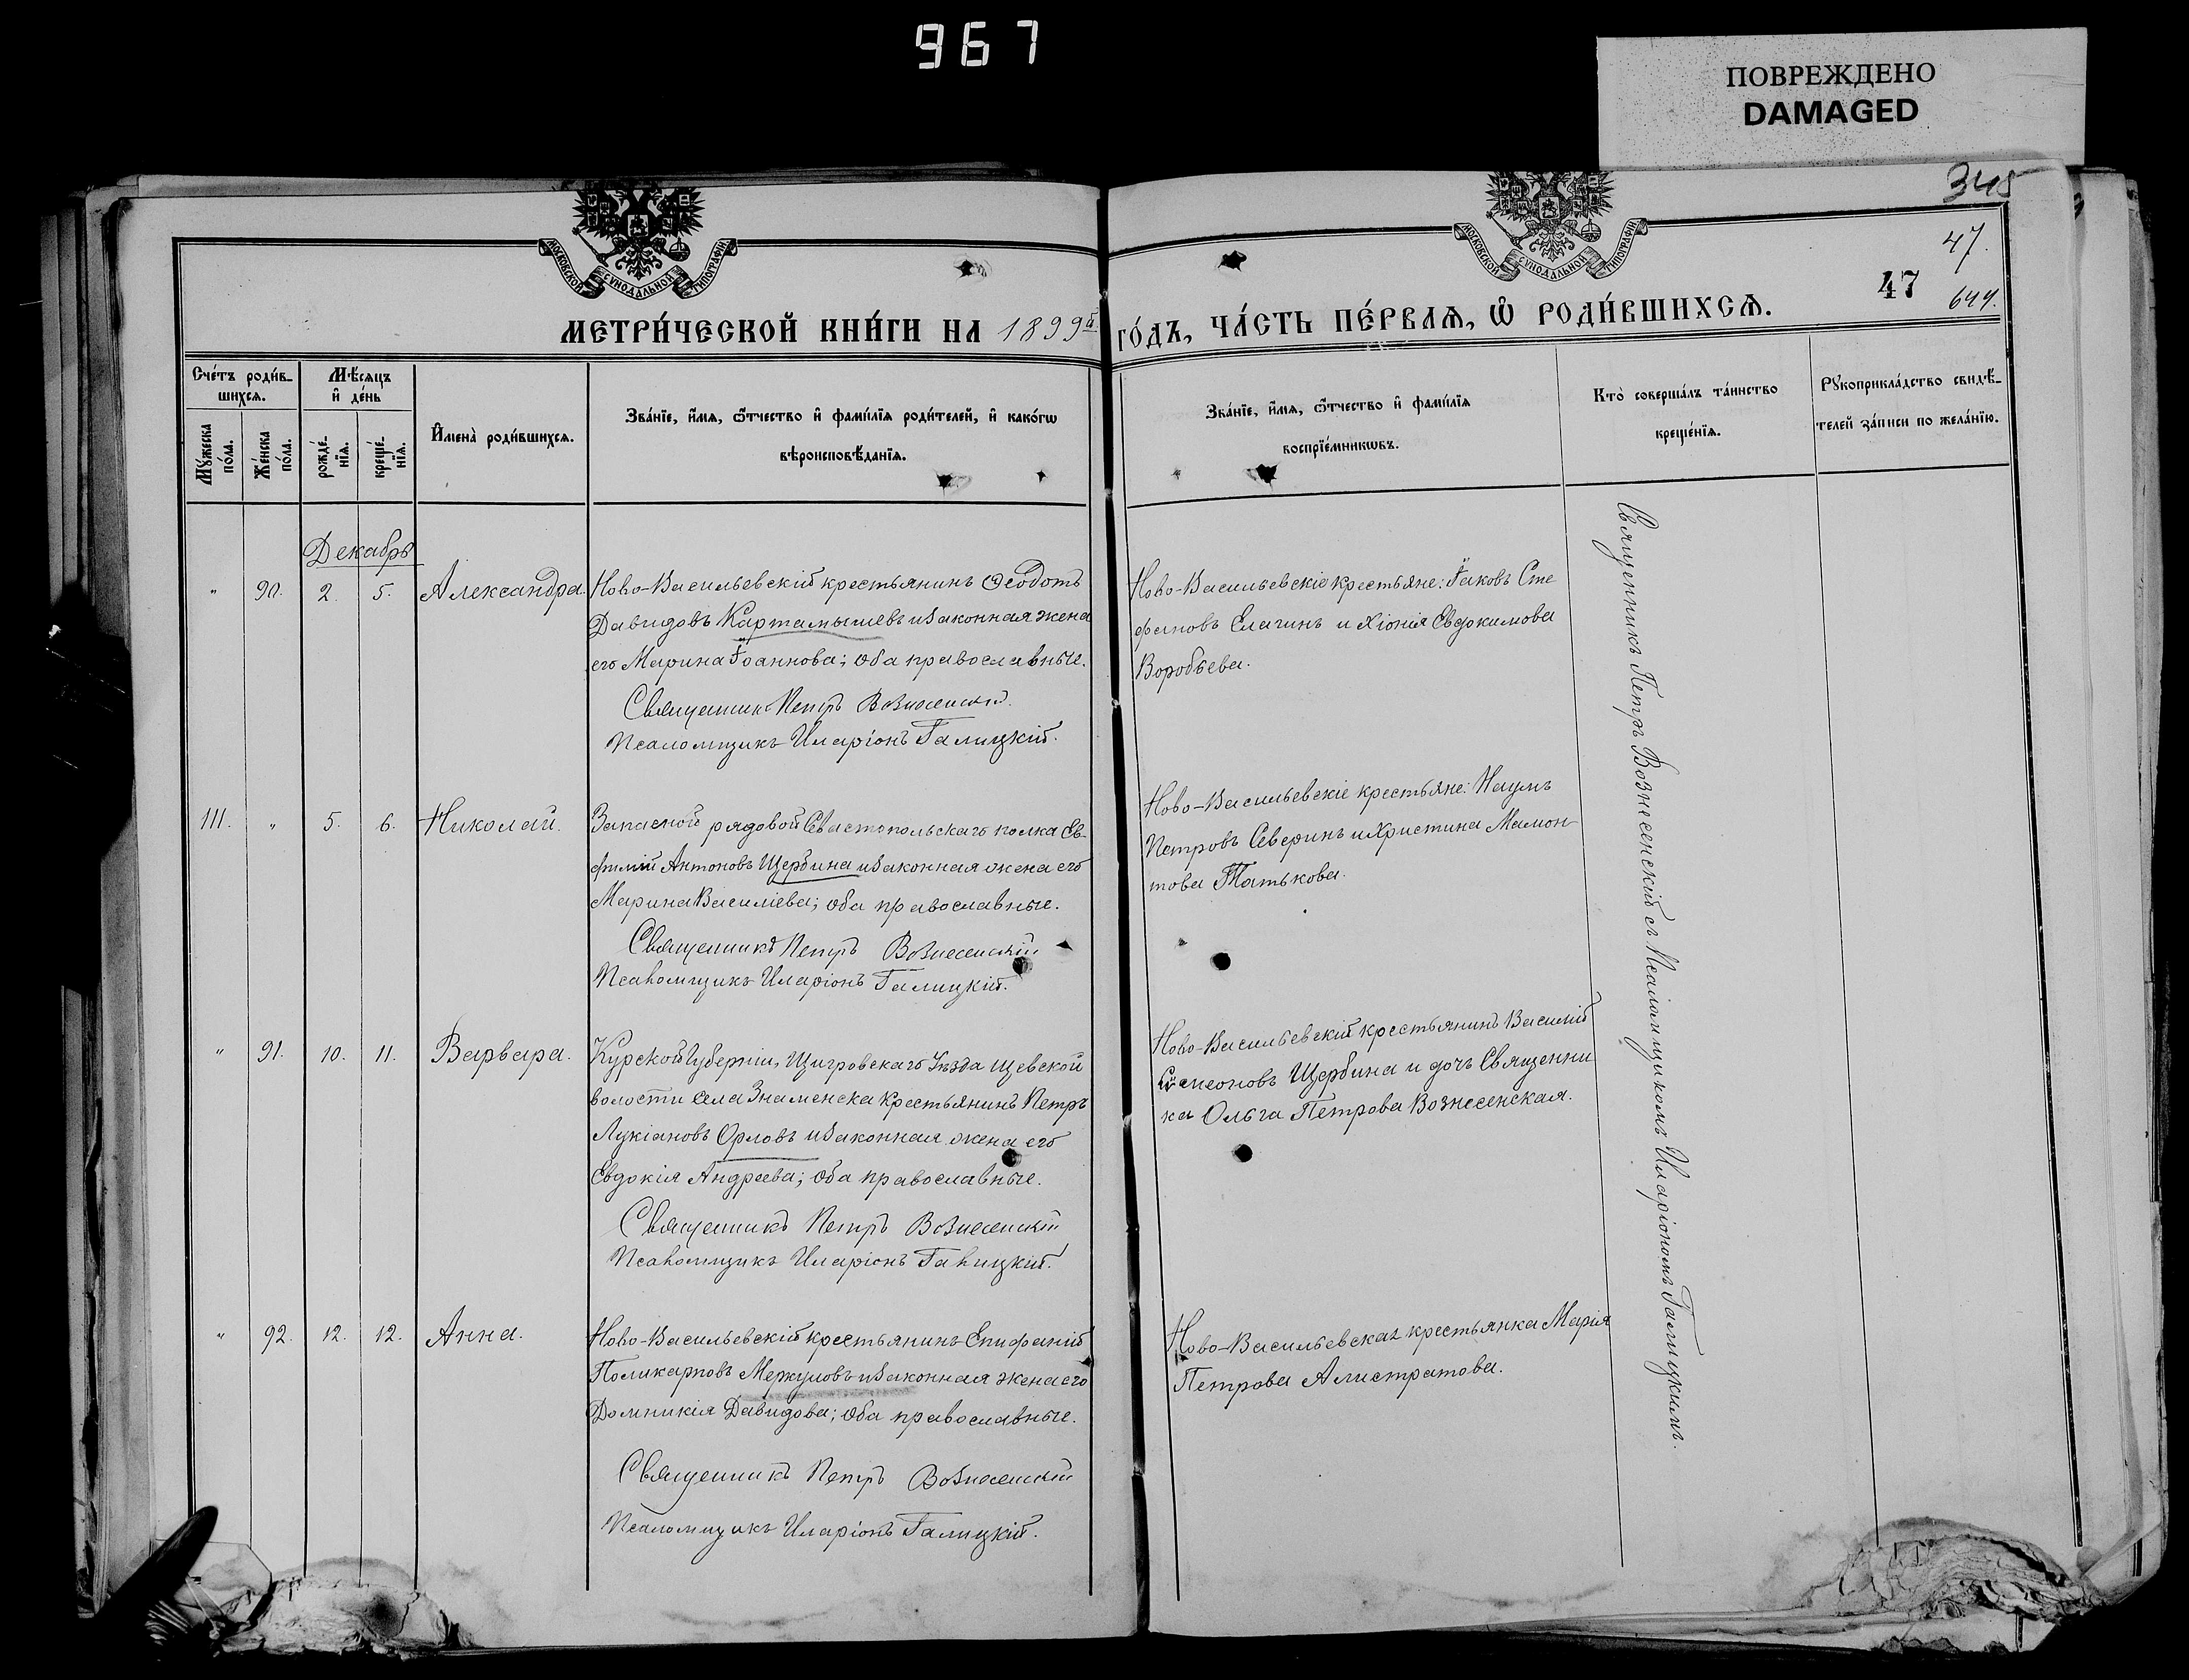 967
ПОВРЕЖДЕНО
DAMAGED
345
47.
47
644.
МОСКОВСКОЙ СУНОДАЛЬНОЙ ТИПОГРАФІИ
МОСКОВСКОЙ СУНОДАЛЬНОЙ ТИПОГРАФІИ
МЕТРИ́ЧЕСКОЙ КНИ́ГИ НА 1899й
ГО́ДЪ, ЧА́СТЬ ПЕ́РВАѦ, Ѡ РОДИ́ВШИХСѦ.
Сче́тъ роди́в-
шихсѧ.
Мѣ́сѧцъ
и҆ де́нь
Мꙋ́жеска
по́ла.
Же́нска
по́ла.
рожде́-
нїѧ.
креще́-
нїѧ.
И҆мена̀ роди́вшихсѧ.
Зва́нїе, и҆́мѧ, ѻ҆́тчество и҆ фами́лїѧ роди́телей, и҆ како́гѡ
вѣроисповѣ́данїѧ.
Зва́нїе, и҆́мѧ, ѻ҆́тчество и҆ фами́лїѧ
воспрїе́мникѡвъ.
Кто̀ соверша́лъ та́инство
креще́нїѧ.
Рꙋкоприкла́дство свидѣ́-
телей за́писи по жела́нїю.
Декабрь
" 90. 2. 5. Александра.
Ново-Васильевскій крестьянинъ Ѳеодотъ
Давидовъ Картамышевъ и законная жена
его Марина Іоаннова; оба православные.
Священникъ Петръ Вознесенскій.
Псаломщикъ Иларіонъ Галицкій.
Ново-Васильевскіе крестьяне: Іаковъ Сте
фановъ Елагинъ и Хіонія Евдокимова
Воробьева.
111. " 5. 6. Николай.
Запасной рядовой Севастопольскаго полка Ев-
фимій Антоновъ Щербина и законная жена его
Марина Василіева; оба православные.
Священникъ Петръ Вознесенскій
Псаломщикъ Иларіонъ Галицкій.
Ново-Васильевскіе крестьяне: Наумъ
Петровъ Северинъ и Христина Мамон
това Татькова.
" 91. 10. 11. Варвара.
Курской Губерніи, Щигровскаго Уѣзда Щевской
волости села Знаменска крестьянинъ Петръ
Лукіановъ Орловъ и законная жена его
Евдокія Андреева; оба православные.
Священникъ Петръ Вознесенскій
Псаломщикъ Иларіонъ Галицкій.
Ново-Васильевскій крестьянинъ Василій
Симеоновъ Щербина и дочь Священни
ка Ольга Петрова Вознесенская.
" 92. 12. 12. Анна.
Ново-Васильевскій крестьянинъ Епифаній
Поликарповъ Меркуловъ и законная жена его
Домникія Давидова; оба православные.
Священникъ Петръ Вознесенскій
Псаломщикъ Иларіонъ Галицкій.
Ново-Васильевская крестьянка Марія
Петрова Алистратова.
Священникъ Петръ Вознесенскій съ Псаломщикомъ Иларіономъ Галицкимъ.